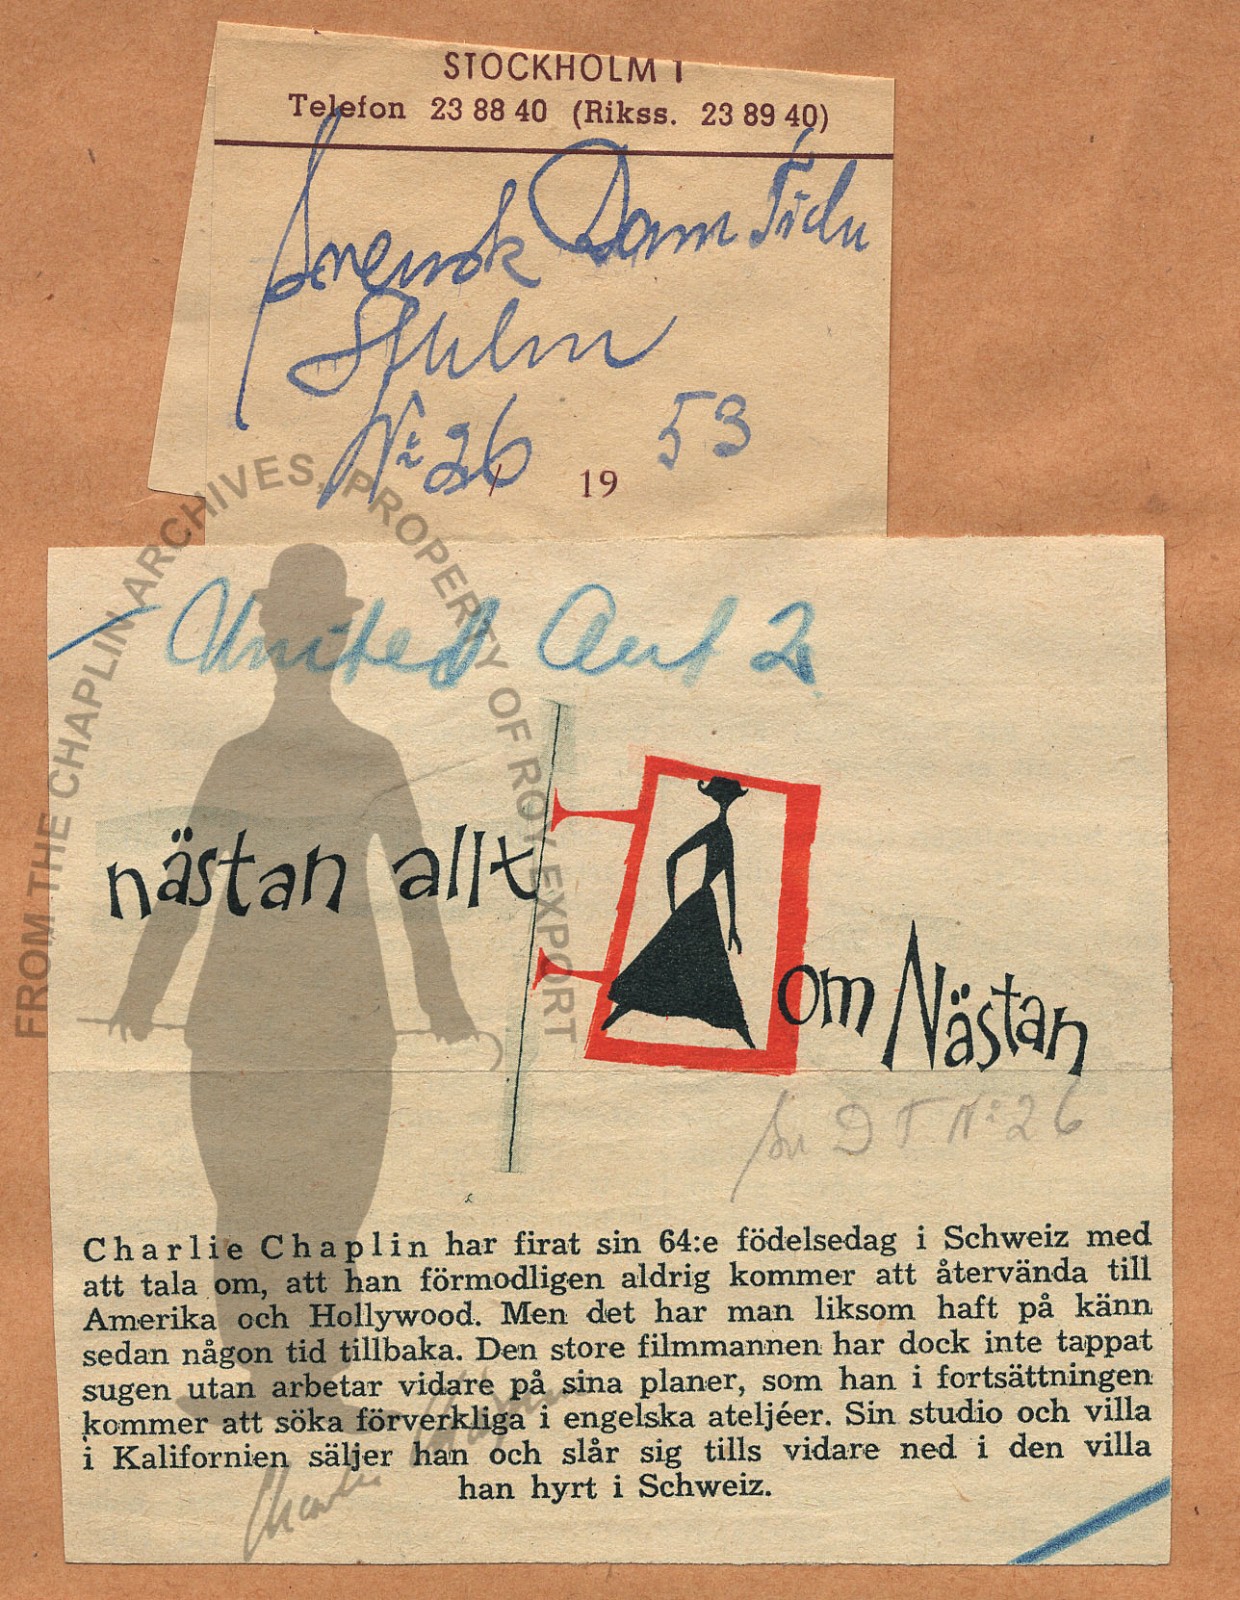 STOCKHOLM 1
Telefon 23 88 40 (Rikss. 23 89 40)
Svensk Dam Tidn
Sthlm
Nr 26 1953
United Art 2
nästan allt
om Nästan
Sv D T Nr 26
Charlie Chaplin har firat sin 64:e födelsedag i Schweiz med
att tala om, att han förmodligen aldrig kommer att återvända till
Amerika och Hollywood. Men det har man liksom haft på känn
sedan någon tid tillbaka. Den store filmmannen har dock inte tappat
sugen utan arbetar vidare på sina planer, som han i fortsättningen
kommer att söka förverkliga i engelska ateljéer. Sin studio och villa
i Kalifornien säljer han och slår sig tills vidare ned i den villa
han hyrt i Schweiz.
Charlie Chaplin
FROM THE CHAPLIN ARCHIVES, PROPERTY OF ROY EXPORT